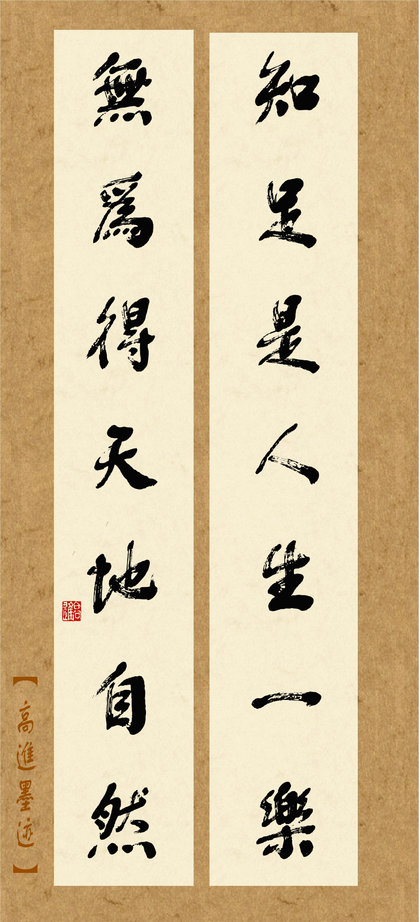 知足是人生一樂
無爲得天地自然
【高進墨迹】